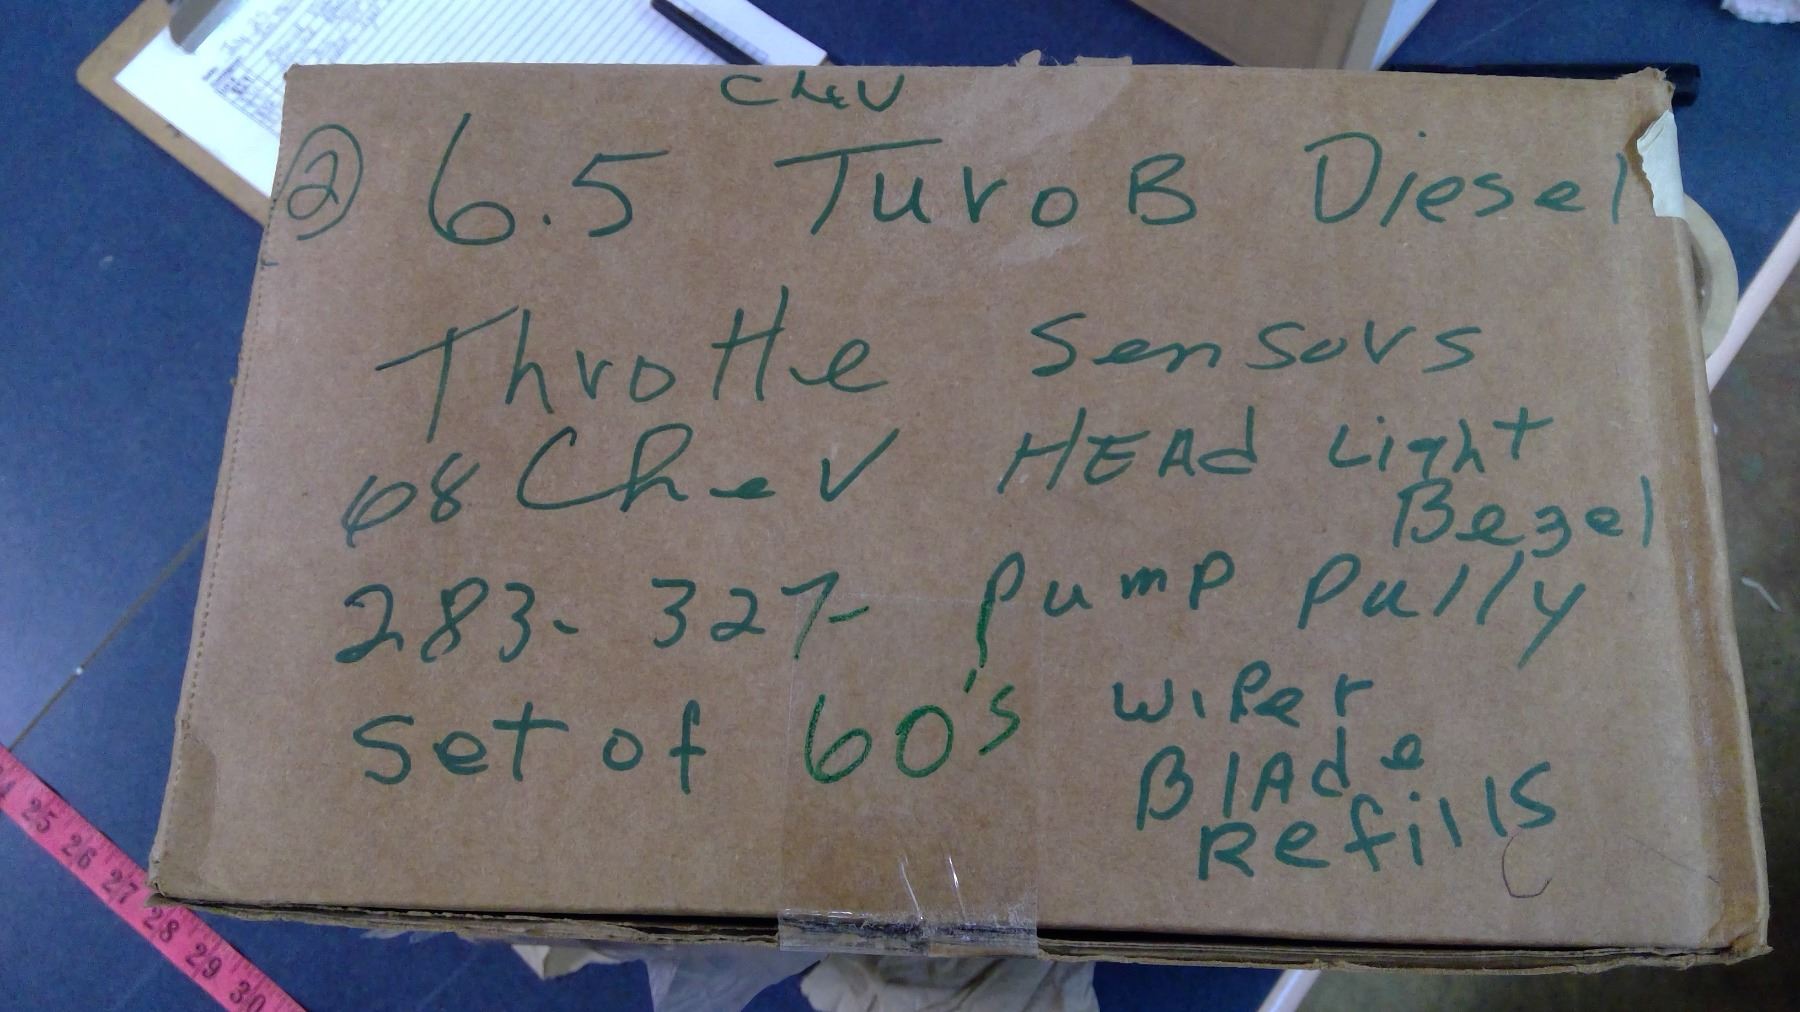 Chev
② 6.5 TuroB Diesel
Throttle Sensors
68 Chev HEAd Light
Bezel
283- 327- Pump Pully
Set of 60's
WiPer
BlAde
Refills
25 26 27 28 29 30